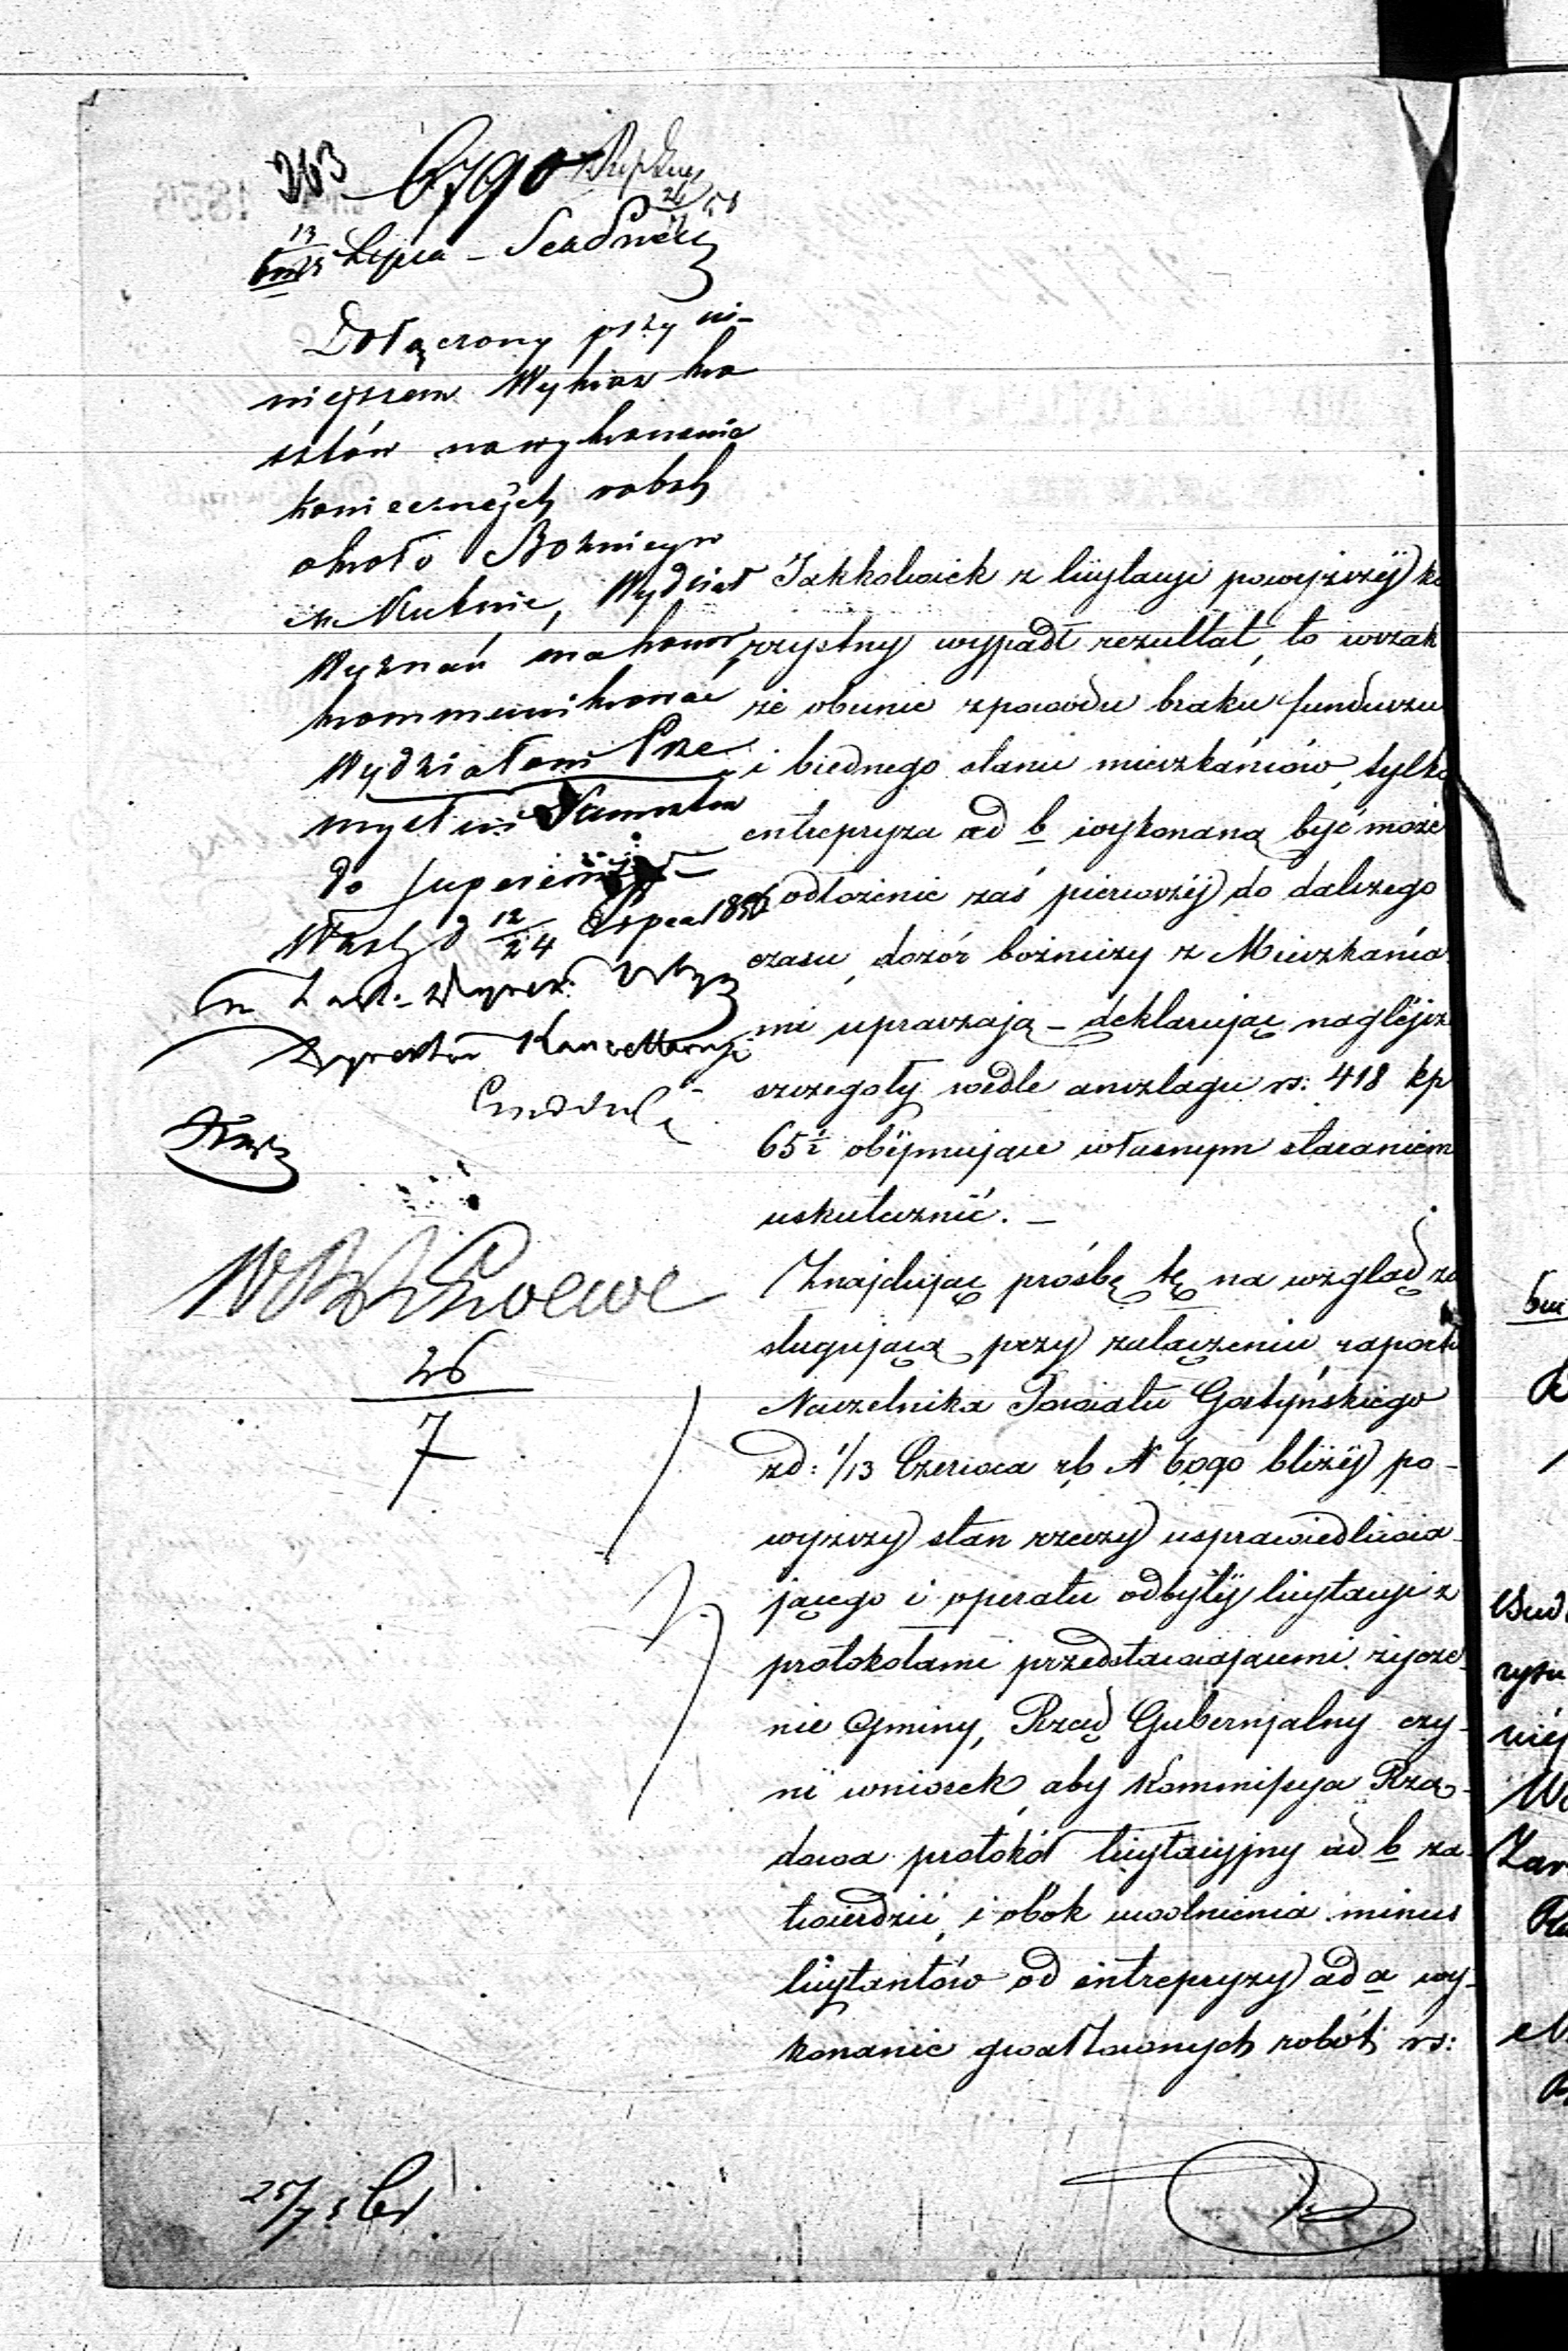 263 6790
13/25 Lipca
Dołączony przy ni-
niejszem Wykaz ko
sztów na wykonanie
koniecznych robot
około Bożnicy w
m. Kutnie, Wydział
Wyznań ma honor
kommunikować
Wydziałowi Prze
mysłu i Kunsztów
do
d 12/24 Lipca 185
Dyrektor Kancellaryi
26
7
25/7
Jakkolwiek z licytacyi powyższéj ko
rzystny wypadł rezultat, to wszak
że obecnie z powodu braku funduszu
i biednego stanu mieszkańców, tylko
entrepryza ad b wykonaną być może
odłożenie zaś pierwszéj do dalszego
czasu, dozór bożniczy z Mieszkańca
mi upraszają – deklarując naglejsz
szczegoły wedle anszlagu rs: 418 kp
65½ obéjmujące własnym staraniem
uskutecznić. –
Znajdując prośbę tę na wzgląd za
sługującą przy załączeniu raportu
Naczelnika Powiatu Gostyńskiego
z d: 1/13 Czerwca rb N 6090 bliżéj po-
wyższy stan rzeczy usprawiedliwia-
jącego i operatu odbytéj licytacyi z
protokołami przedstawiającemi życze-
nie Gminy, Rząd Gubernjalny czy-
ni wniosek, aby Kommissya Rzą-
dowa protokół licytacyjny ad b za-
twierdzić, i obok uwolnienia minus
licytantów od entrepryzy ad a wy-
konanie gwałtownych robót rs: